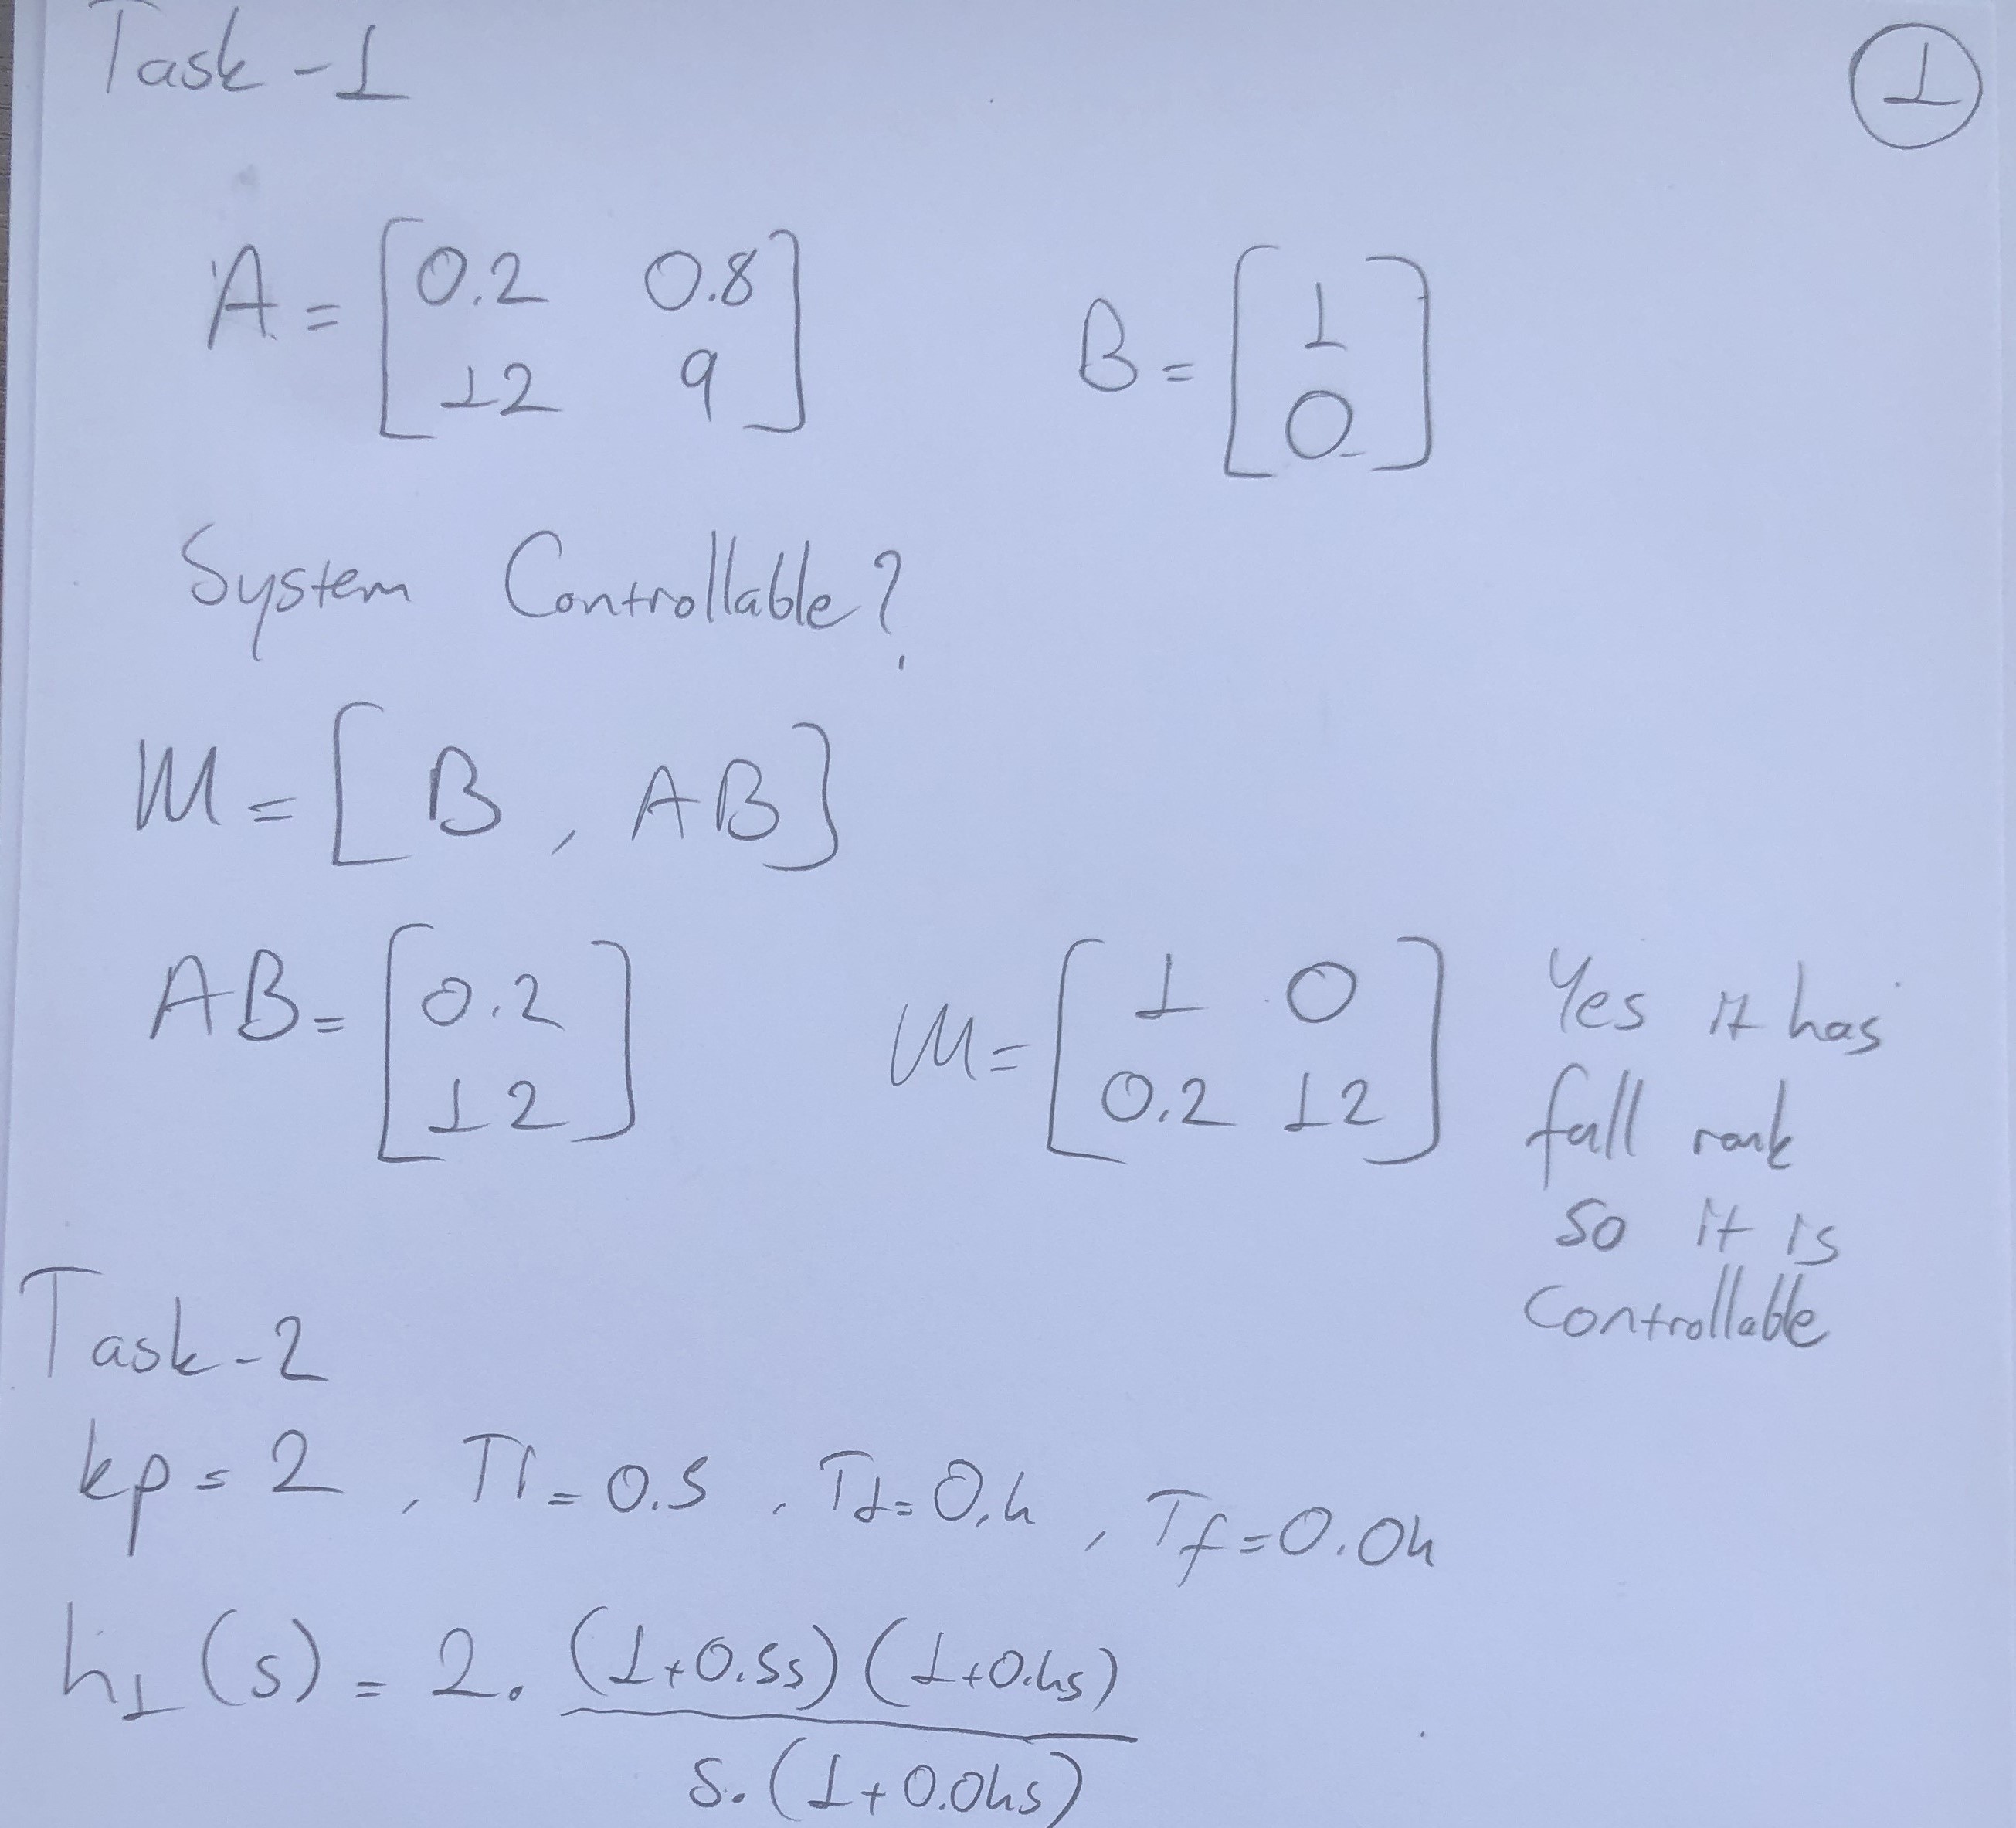 Task-1
1
A = [0.2 0.8
12 9]
B = [1
0]
System Controllable?
M = [B, AB]
AB = [0.2
12]
M = [1 0
0.2 12]
Yes it has
full rank
so it is
Controllable
Task-2
kp = 2, Ti = 0.5, Td = 0.4, Tf = 0.04
h1(s) = 2. (1+0.5s)(1+0.4s)
s.(1+0.04s)